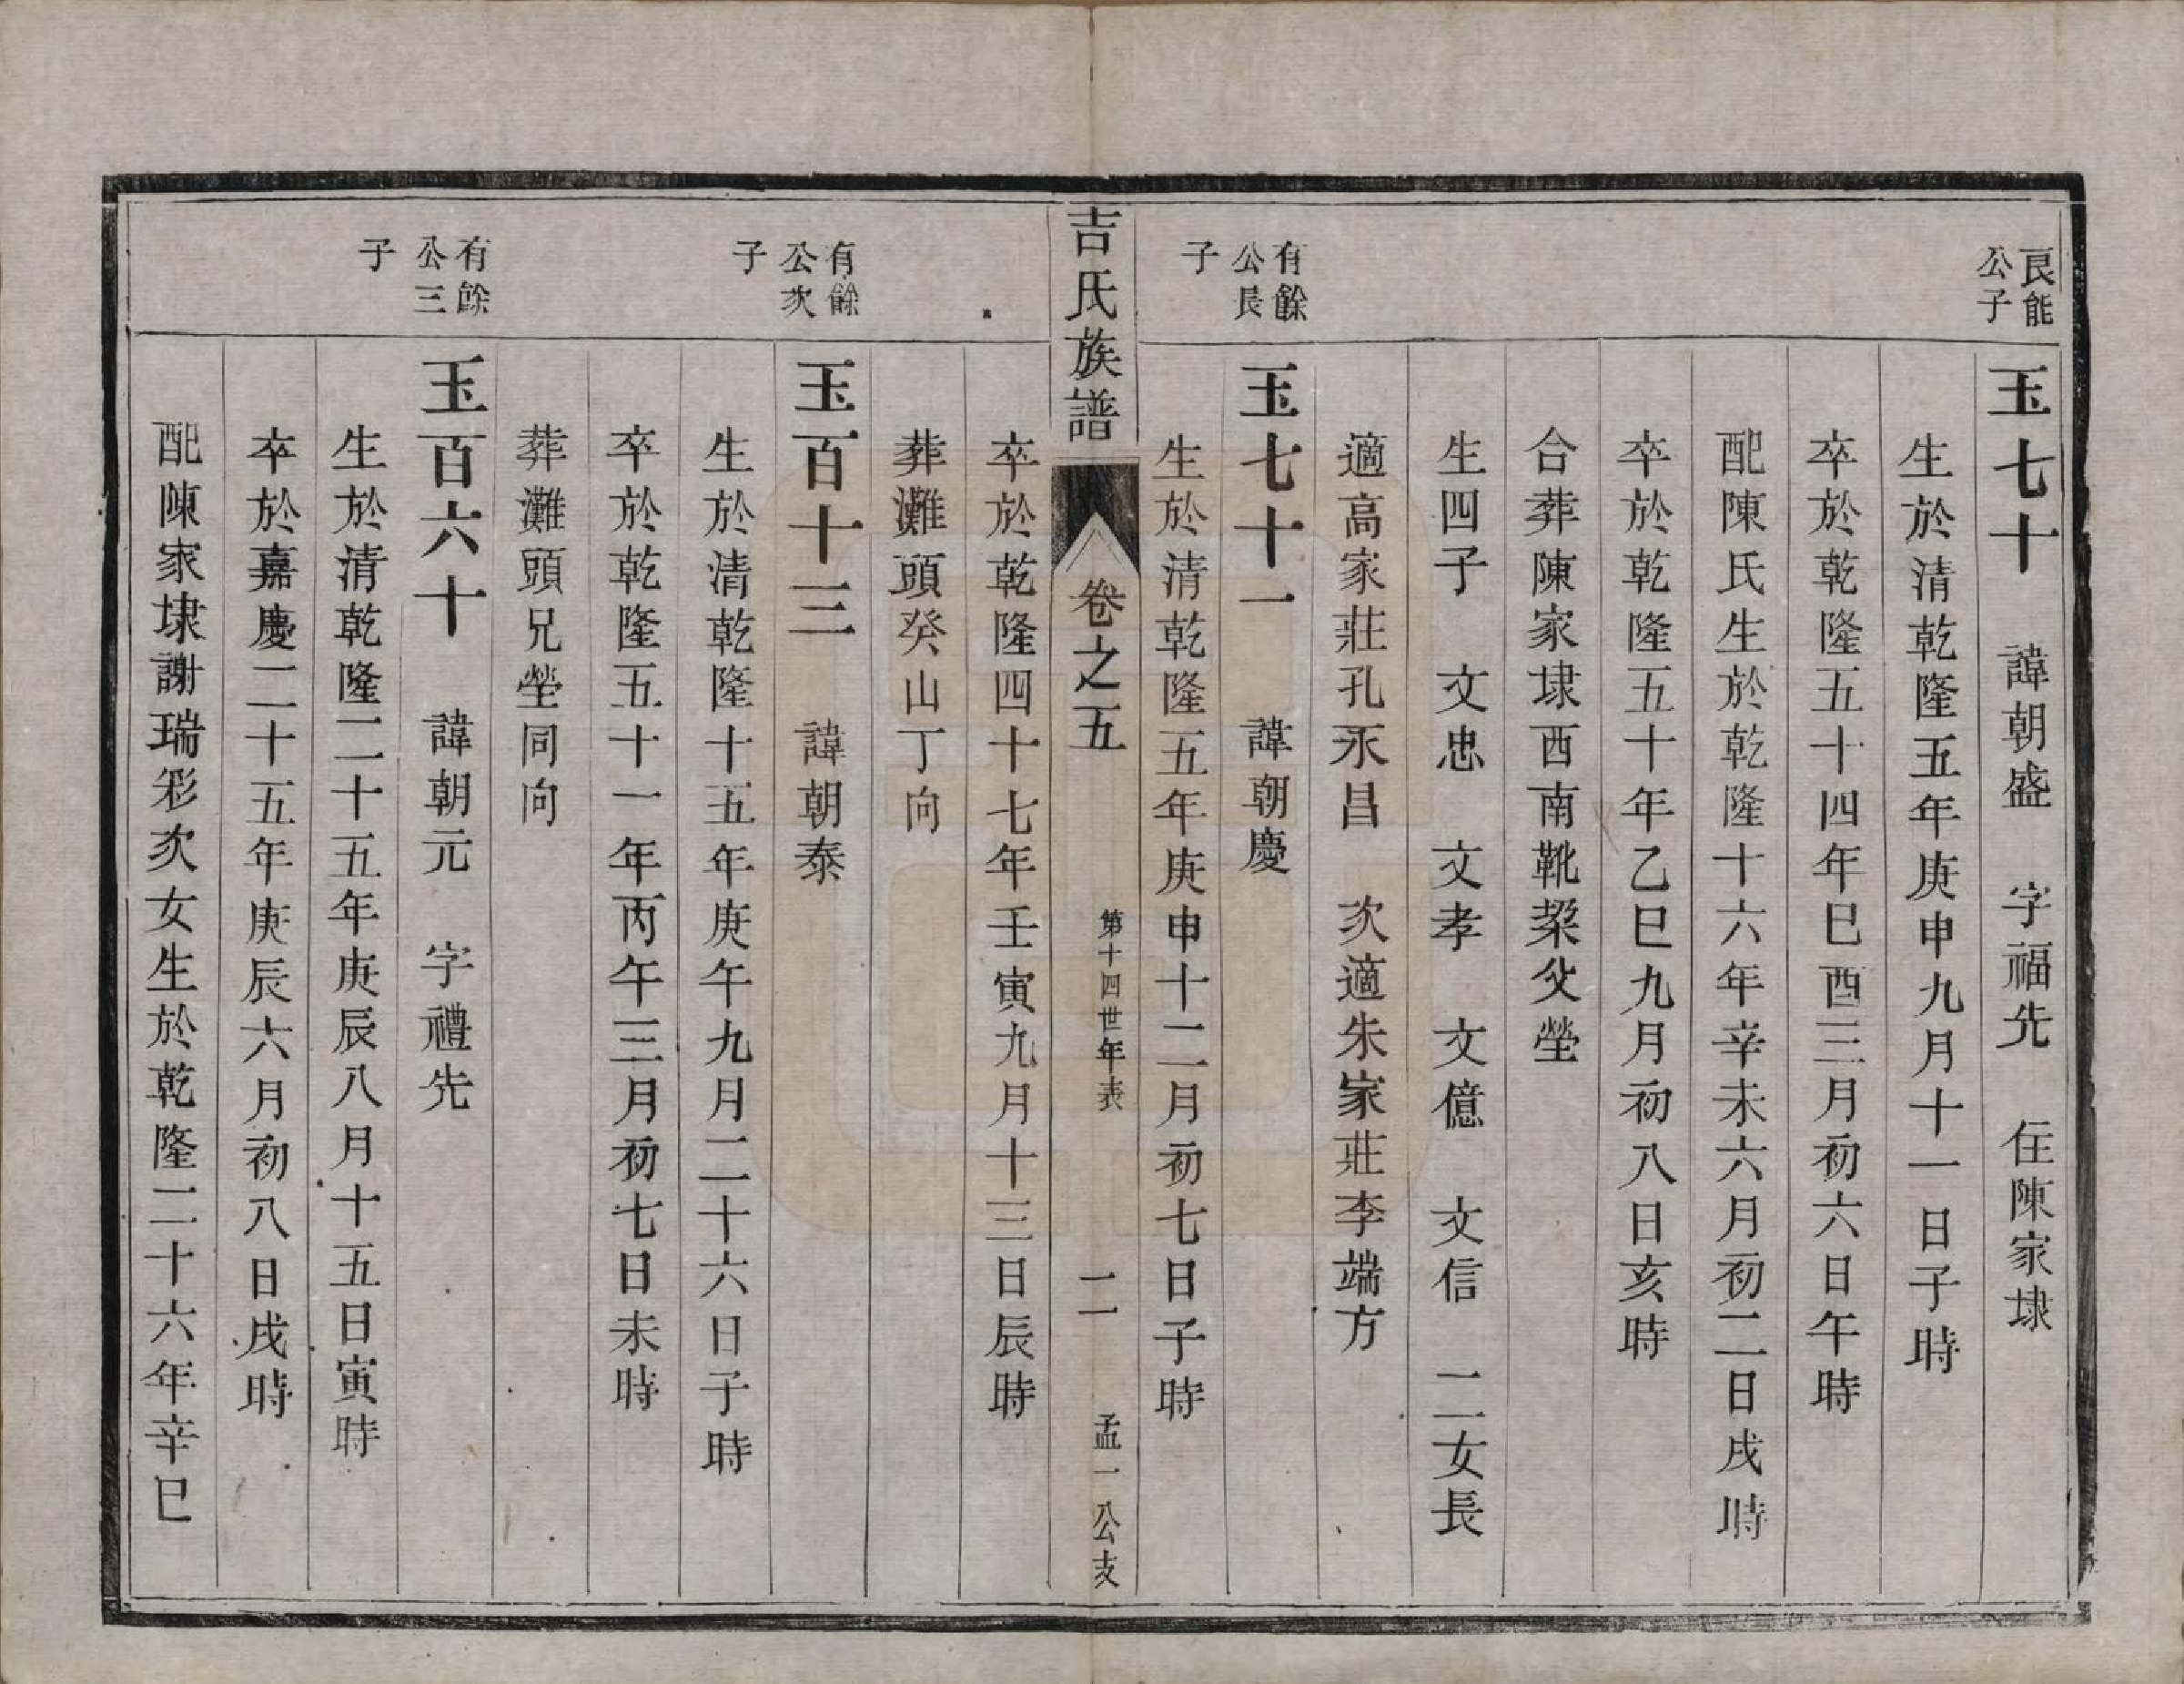 良能
公子
玉七十　諱朝盛　字福先　住陳家埭
生於清乾隆五年庚申九月十一日子時
卒於乾隆五十四年巳酉三月初六日午時
配陳氏生於乾隆十六年辛未六月初二日戌時
卒於乾隆五十年乙巳九月初八日亥時
合葬陳家埭西南靴梁父塋
生四子　文忠　文孝　文億　文信　二女長
適高家莊孔永昌　次適朱家莊李端方
有餘
公長
子
玉七十一　諱朝慶
生於清乾隆五年庚申十二月初七日子時
吉氏族譜　卷之五　第十四世年表　二　孟一公支
卒於乾隆四十七年壬寅九月十三日辰時
葬灘頭癸山丁向
有餘
公次
子
玉百十三　諱朝泰
生於清乾隆十五年庚午九月二十六日子時
卒於乾隆五十一年丙午三月初七日未時
葬灘頭兄塋同向
有餘
公三
子
玉百六十　諱朝元　字禮先
生於清乾隆二十五年庚辰八月十五日寅時
卒於嘉慶二十五年庚辰六月初八日戌時
配陳家埭謝瑞彩次女生於乾隆二十六年辛巳